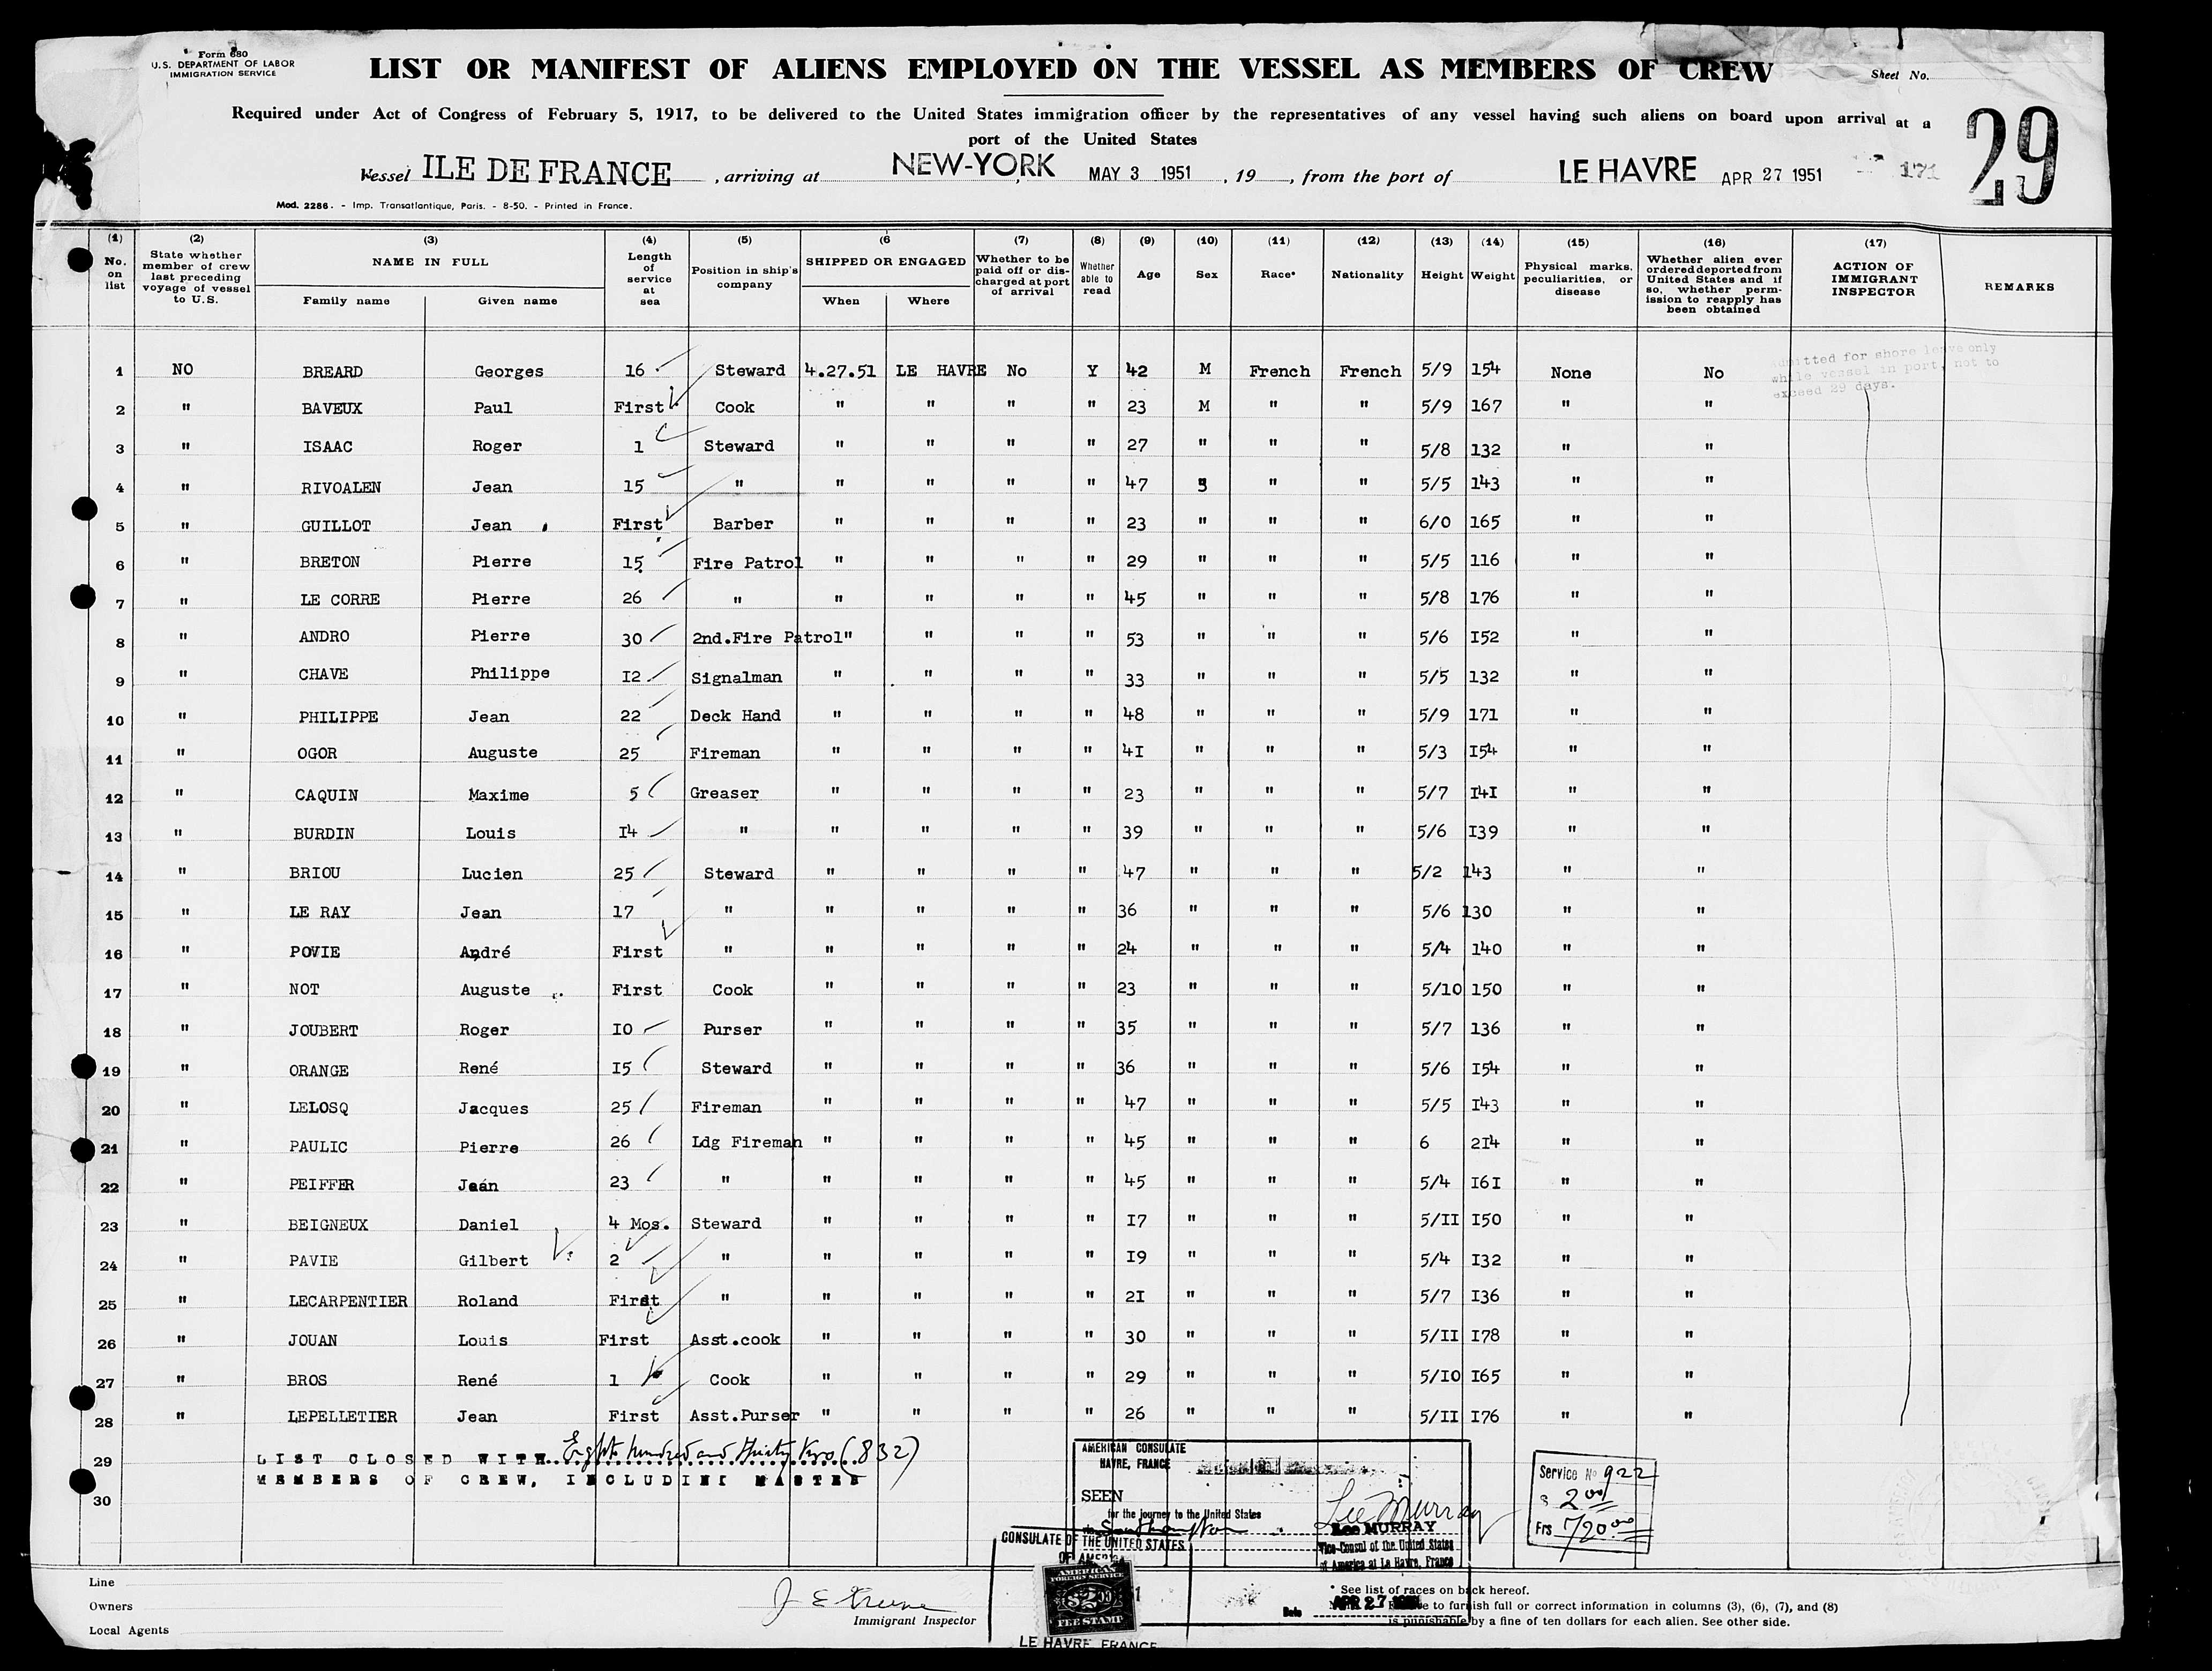 Form 680
U.S. DEPARTMENT OF LABOR
IMMIGRATION SERVICE
LIST OR MANIFEST OF ALIENS EMPLOYED ON THE VESSEL AS MEMBERS OF CREW
Sheet No.
29
Required under Act of Congress of February 5, 1917, to be delivered to the United States immigration officer by the representatives of any vessel having such aliens on board upon arrival at a
port of the United States
Vessel ILE DE FRANCE, arriving at NEW-YORK MAY 3 1951, 19, from the port of LE HAVRE APR 27 1951 171
Mod. 2286. - Imp. Transatlantique, Paris. - 8-50. - Printed in France.
(1) No. on list
(2) State whether member of crew last preceding voyage of vessel to U.S.
(3) NAME IN FULL Family name Given name
(4) Length of service at sea
(5) Position in ship's company
(6 SHIPPED OR ENGAGED When Where
(7) Whether to be paid off or discharged at port of arrival
(8) Whether able to read
(9) Age
(10) Sex
(11) Race*
(12) Nationality
(13) Height
(14) Weight
(15) Physical marks, peculiarities, or disease
(16) Whether alien ever ordered deported from United States and if so, whether permission to reapply has been obtained
(17) ACTION OF IMMIGRANT INSPECTOR
REMARKS
1 NO BREARD Georges 16 Steward 4.27.51 LE HAVRE No Y 42 M French French 5/9 154 None No
Admitted for shore leave only
while vessel in port, not to
exceed 29 days.
2 " BAVEUX Paul First Cook " " " " 23 M " " 5/9 167 " "
3 " ISAAC Roger 1 Steward " " " " 27 " " " 5/8 132 " "
4 " RIVOALEN Jean 15 " " " " " 47 " " 5/5 143 " "
5 " GUILLOT Jean First Barber " " " " 23 " " " 6/0 165 " "
6 " BRETON Pierre 15 Fire Patrol " " " " 29 " " " 5/5 116 " "
7 " LE CORRE Pierre 26 " " " " " 45 " " " 5/8 176 " "
8 " ANDRO Pierre 30 2nd.Fire Patrol " " " " 53 " " " 5/6 I52 " "
9 " CHAVE Philippe I2 Signalman " " " " 33 " " " 5/5 132 " "
10 " PHILIPPE Jean 22 Deck Hand " " " " 48 " " " 5/9 171 " "
11 " OGOR Auguste 25 Fireman " " " " 4I " " " 5/3 I54 " "
12 " CAQUIN Maxime 5 Greaser " " " " 23 " " " 5/7 I4I " "
13 " BURDIN Louis I4 " " " " " 39 " " " 5/6 I39 " "
14 " BRIOU Lucien 25 Steward " " " " 47 " " " 5/2 143 " "
15 " LE RAY Jean 17 " " " " " 36 " " " 5/6 130 " "
16 " POVIE André First " " " " " 24 " " " 5/4 140 " "
17 " NOT Auguste First Cook " " " " 23 " " " 5/10 150 " "
18 " JOUBERT Roger IO Purser " " " " 35 " " " 5/7 136 " "
19 " ORANGE René I5 Steward " " " " 36 " " " 5/6 I54 " "
20 " LELOSQ Jacques 25 Fireman " " " " 47 " " " 5/5 I43 " "
21 " PAULIC Pierre 26 Ldg Fireman " " " " 45 " " " 6 2I4 " "
22 " PEIFFER Jean 23 " " " " " 45 " " " 5/4 I6I " "
23 " BEIGNEUX Daniel 4 Mos. Steward " " " " I7 " " " 5/II I50 " "
24 " PAVIE Gilbert 2 " " " " " I9 " " " 5/4 I32 " "
25 " LECARPENTIER Roland First " " " " " 2I " " " 5/7 I36 " "
26 " JOUAN Louis First Asst.cook " " " " 30 " " " 5/II I78 " "
27 " BROS René 1 Cook " " " " 29 " " " 5/IO I65 " "
28 " LEPELLETIER Jean First Asst.Purser " " " " 26 " " " 5/II I76 " "
29 LIST CLOSED WITH Eight hundred and Thirty two (832)
MEMBERS OF CREW, INCLUDING MASTER
30
AMERICAN CONSULATE
HAVRE, FRANCE
SEEN
for the journey to the United States
via Southampton
Lee Murray
Lee MURRAY
Vice-Consul of the United States
of America at Le Havre, France
Date APR 27 1951
Service No 922
$ 2 00
Frs 720.00
CONSULATE OF THE UNITED STATES
OF AMERICA
AMERICAN
FOREIGN SERVICE
$2.00
FEE STAMP
LE HAVRE, FRANCE
Line
Owners
Local Agents
Immigrant Inspector
* See list of races on back hereof.
to furnish full or correct information in columns (3), (6), (7), and (8)
is punishable by a fine of ten dollars for each alien. See other side.